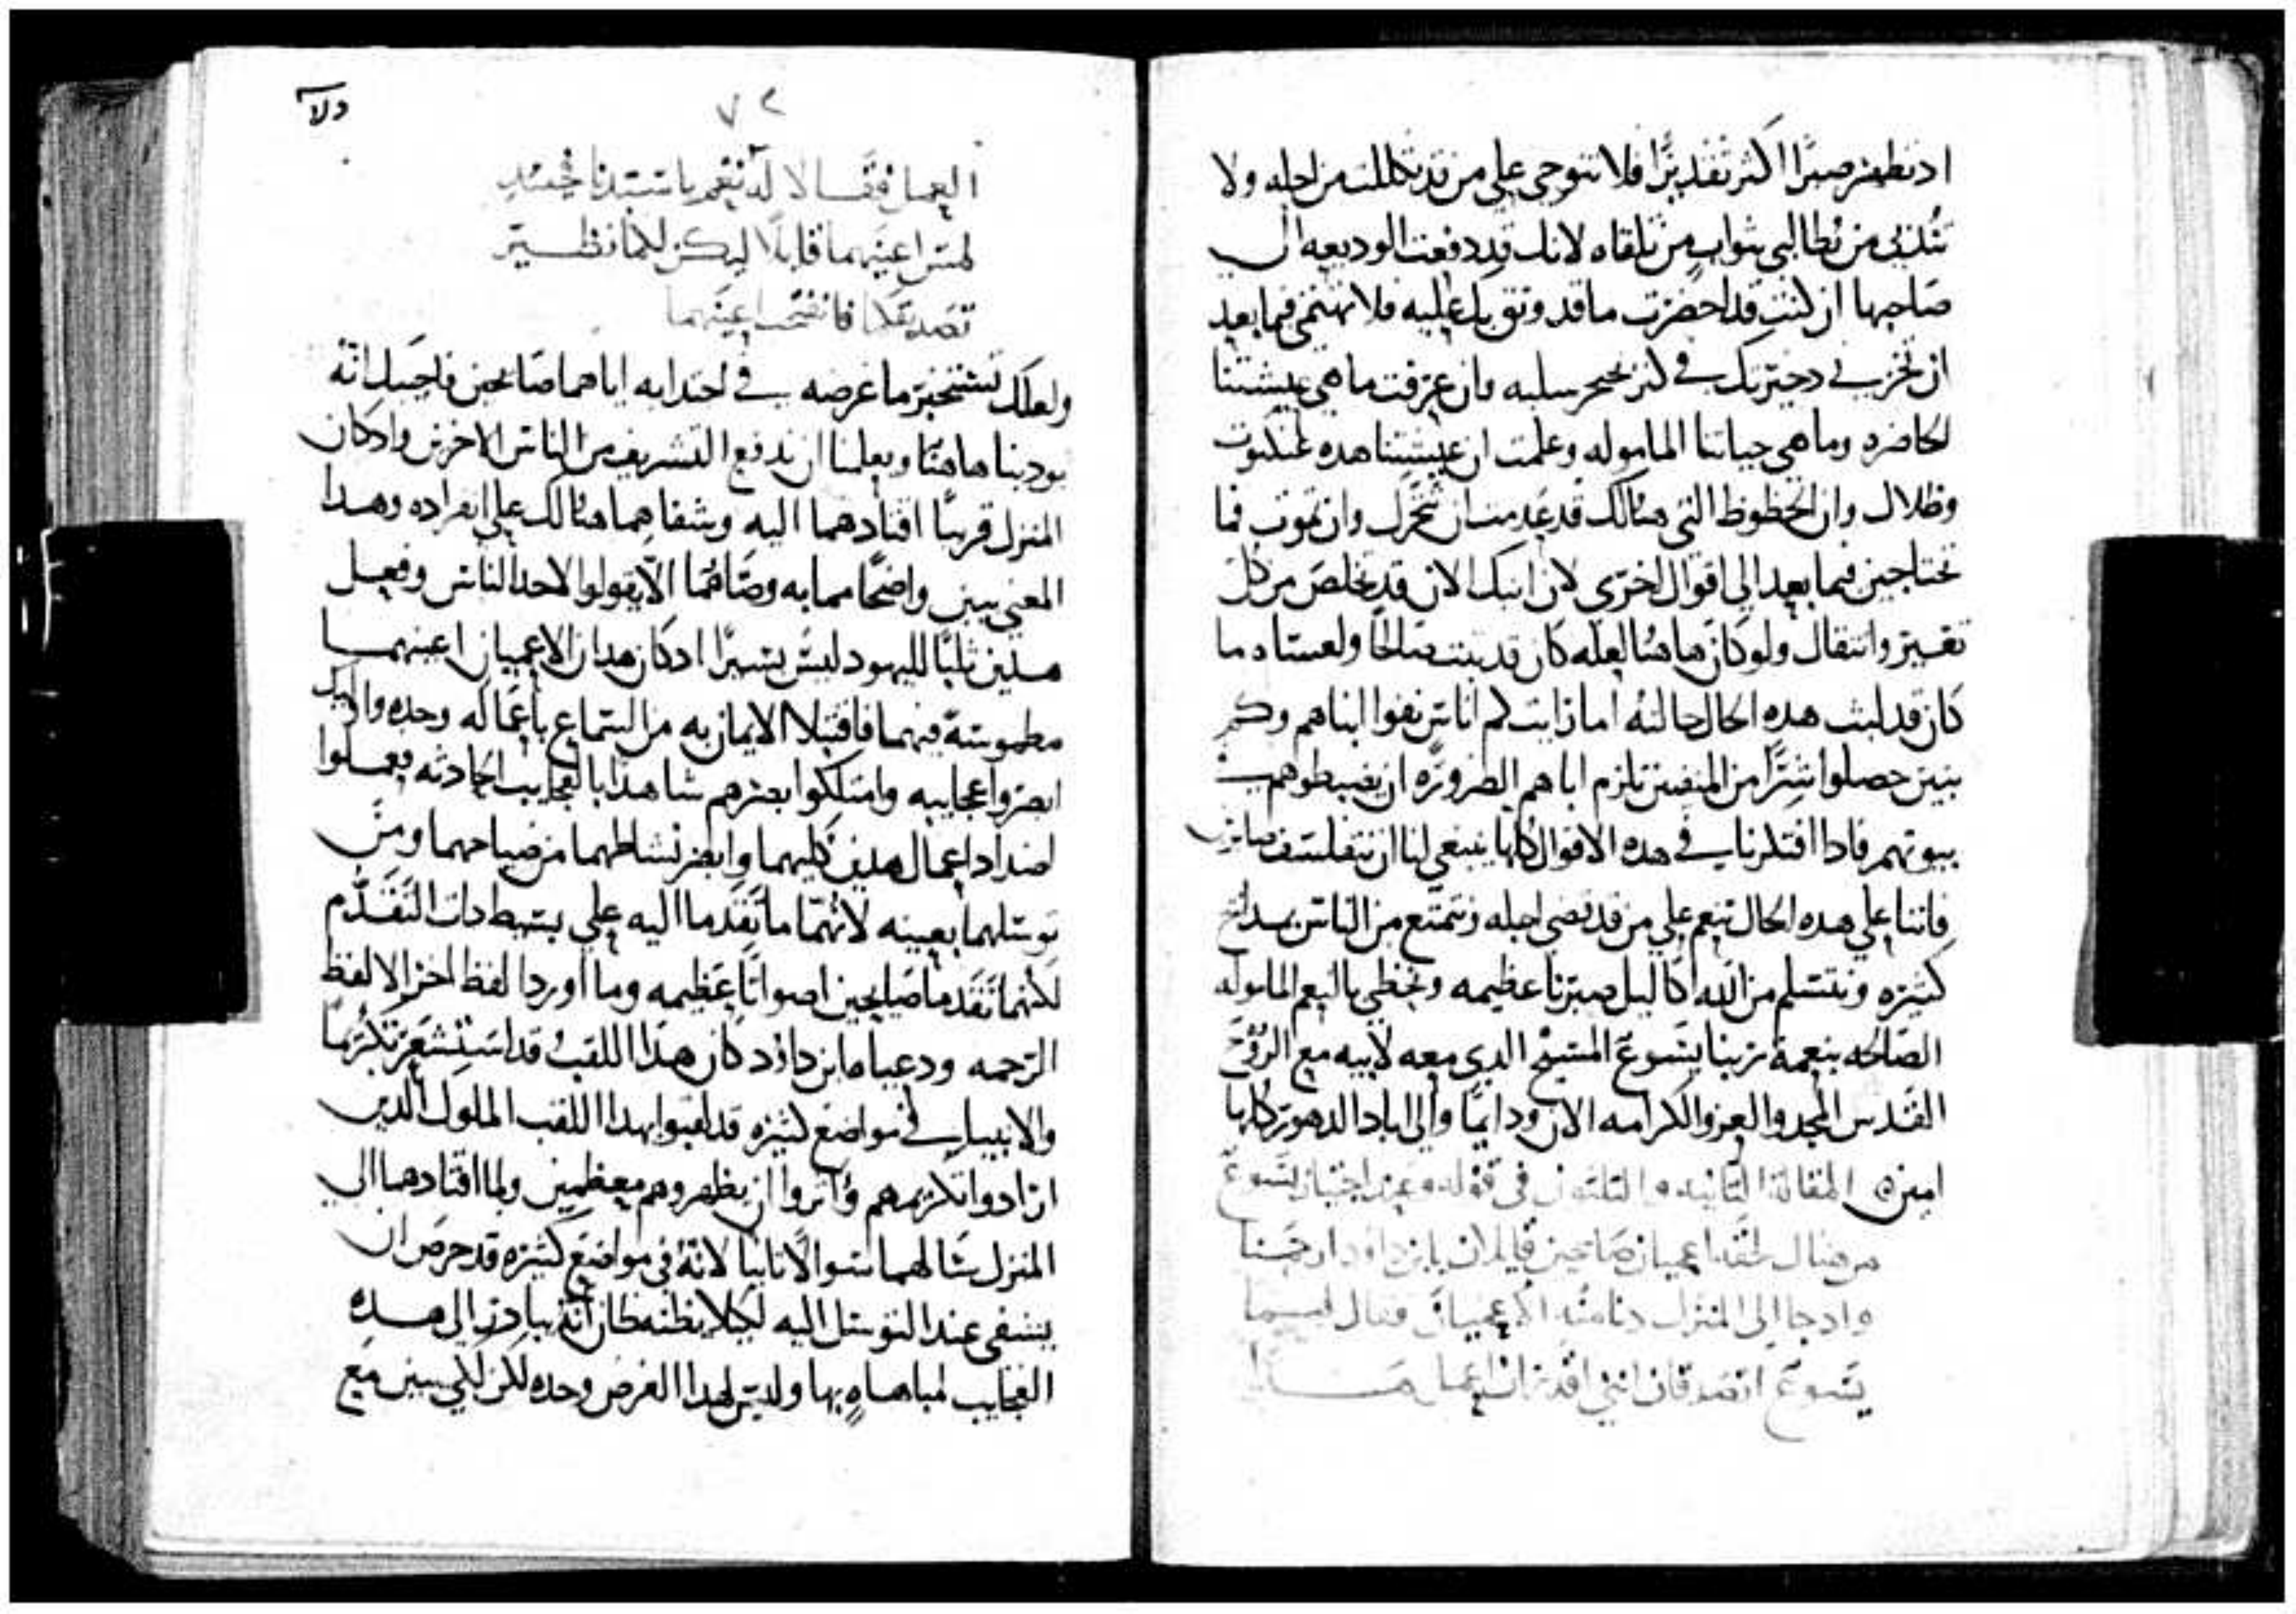 اد تظهر صبرًا اكثر تقديرًا فلا تنوحي على من قد تكللت من اجله ولا
تثلبي من تطالبي بثواب من تلقاه لانك قد دفعت الوديعه الى
صاحبها ان كنت قد احضرت ما قد وثق بك عليه فلا تهتمي فيما بعد
ان تخزني دخيرتك في كنز يعسر سلبه وان عرفت ما هي عيشتنا
الحاضره وما هي حياتنا الماموله وعلمت ان عيشتنا هده عنكبوت
وظلال وان الحظوظ التي هنالك قد عدمت ان تتحرك وان تموت فما
تحتاجين فيما بعد الى اقوال اخرى لان ابنك الان قد تخلص من كل
تغيير وانتقال ولو كان هاهنا لعله كان قد يثبت صالحًا ولعساه ما
كان قد لبث هده الحال حالته اما رايت كم اناس نفوا ابناهم وكم
بنين حصلوا اشرًا من المنفيين تلزم اباهم الضروره ان يضبطوهم في
بيوتهم فادا افتكرنا في هده الاقوال كلها ينبغي لنا ان نتفلسف صابرين
فاننا على هده الحال ننعم على من قد قضى اجله ونتمتع من الناس بمدائح
كثيره ونتسلم من الله اكاليل صبرنا عظيمه ونحظى بالنعم الماموله
الصالحه بنعمة ربنا يسوع المسيح الدي معه لابيه مع الروح
القدس المجد والعز والكرامه الان ودايمًا والى اباد الدهور كلها
امين المقالة الثانيه والثلثون في قوله وعند اجتياز يسوع
من هنالك لحقه اعميان صايحين قايلان يا ابن داود ارحمنا
واد جا الى المنزل دنا منه الاعميان فقال لهما
يسوع اتصدقان انني اقدر ان اعمل هذا
دلا
٧٢
العمل فقالا له نعم يا سيدنا حينئدٍ
لمس اعينهما قايلًا ليكن لكما نظير
تصديقكما فانفتحت اعينهما
ولعلك تستخبر ما غرضه في اجتدابه اياهما صايحين فاجيبك انه
يودبنا هاهنا ويعلمنا ان ندفع التشريف من الناس الاخرين واد كان
المنزل قريبًا اقتادهما اليه وشفاهما هنالك على انفراده وهدا
المعنى يبين واضحًا مما به وصاهما الا يقولوا لاحد الناس وفعل
هدين ثلبًا لليهود ليس يسيرًا اد كان هدان الاعميان اعينهما
مطموسة فيهما فاقتبلا الايمان به من استماع باعماله وحده واوليك
ابصروا عجايبه وامتلكوا بصرهم شاهدًا بالعجايب الحادثه فعملوا
اضداد اعمال هدين كليهما وابصر نشاطهما من صياحهما ومن
توسلهما بعينه لانهما ما تقدما اليه على بسيط دات التقدم
لكنهما تقدما صايحين اصواتًا عظيمه وما اوردا لفظ اخر الا لفظ
الرحمه ودعياه ابن داؤد كان هذا اللقب قد استشعر تكرمًا
والانبيا في مواضع كثيره قد لقبوا بهدا اللقب الملوك الدين
ارادوا تكريمهم واثروا ان يظهروهم معظمين ولما اقتادهما الى
المنزل سالهما سوالًا ثانيًا لانه في مواضع كثيره قد حرص ان
يشفى عند التوسل اليه لكيلا يظنه ظان انه يبادر الى هده
العجايب لمباهاه بها وليس لهدا الغرض وحده لكن لكي يبين مع